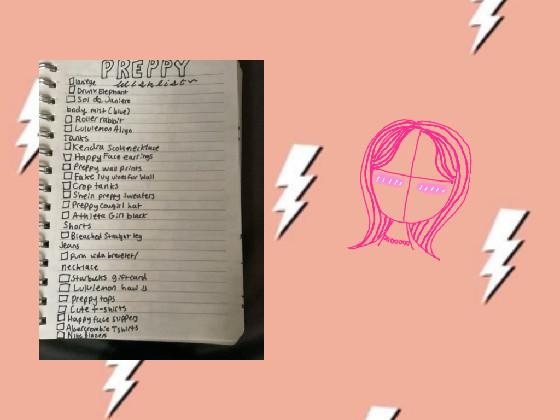 PREPPY
Wishlist
laneige
Drunk Elephant
Sol de Janiero
body mist (blue)
Roller rabbit
Lululemon Align
Tanks
Kendra Scott necklace
Happy Face earrings
Preppy wall prints
Fake Ivy vines for wall
Crop tanks
Shein preppy sweaters
Preppy cowgirl hat
Athleta Girl black
Shorts
Bleached Straight leg
Jeans
Pura vida bracelet/
necklace
Starbucks giftcard
Lululemon
preppy tops
Cute t-shirts
Happy face slippers
Abercrombie Tshirts
Nike Blazers